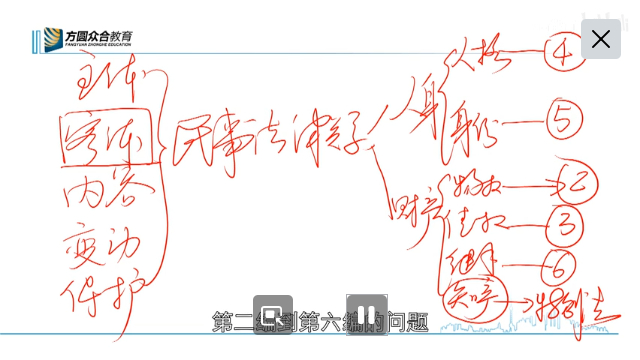 方圆众合教育
FANGYUAN ZHONGHE EDUCATION
主体
客体
内容
变动
保护
民事法律关系
人身
人格 ④
身份 ⑤
财产
物权 ②
债权 ③
继承 ⑥
知产 特别法
第二编到第六编的问题